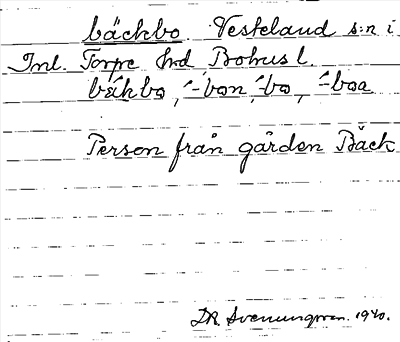 bäckbo Veskeland s:n i
Inl. Torpe hd Bohus l.
bäkbo, ´-bon, ´-bo, ´-boa
Person från gården Bäck
D.A. Svenungsson. 1940.